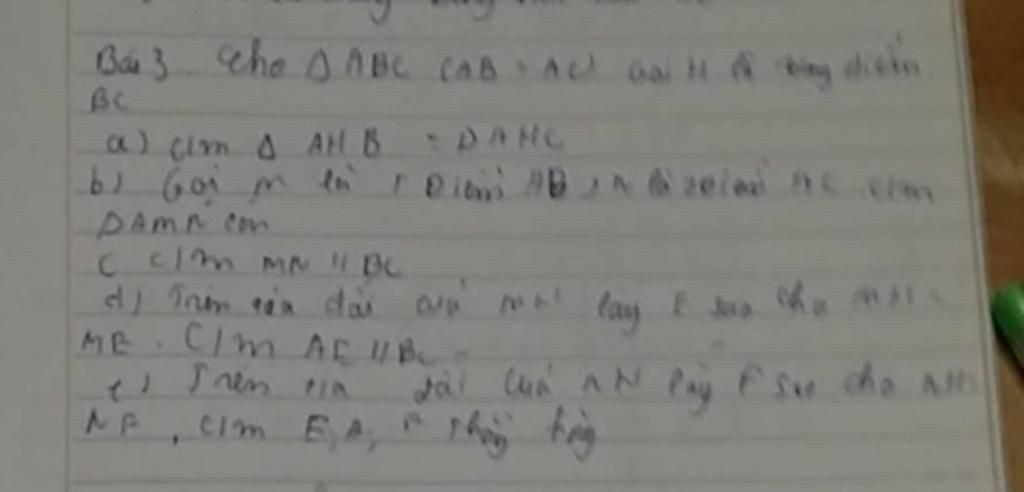 Bài 3. Cho Δ ABC (AB = AC) Gọi H là trung điểm
BC
a) c/m Δ AHB = DAHC
b) Gọi M là Điểm AB, N là AC c/m
DAMN cân
C c/m MN // BC
d) Trên của lấy E sao cho MH =
ME. C/m AE // BC
e) Trên của NH lấy F sao cho NH =
NF. c/m E, A, F thẳng hàng